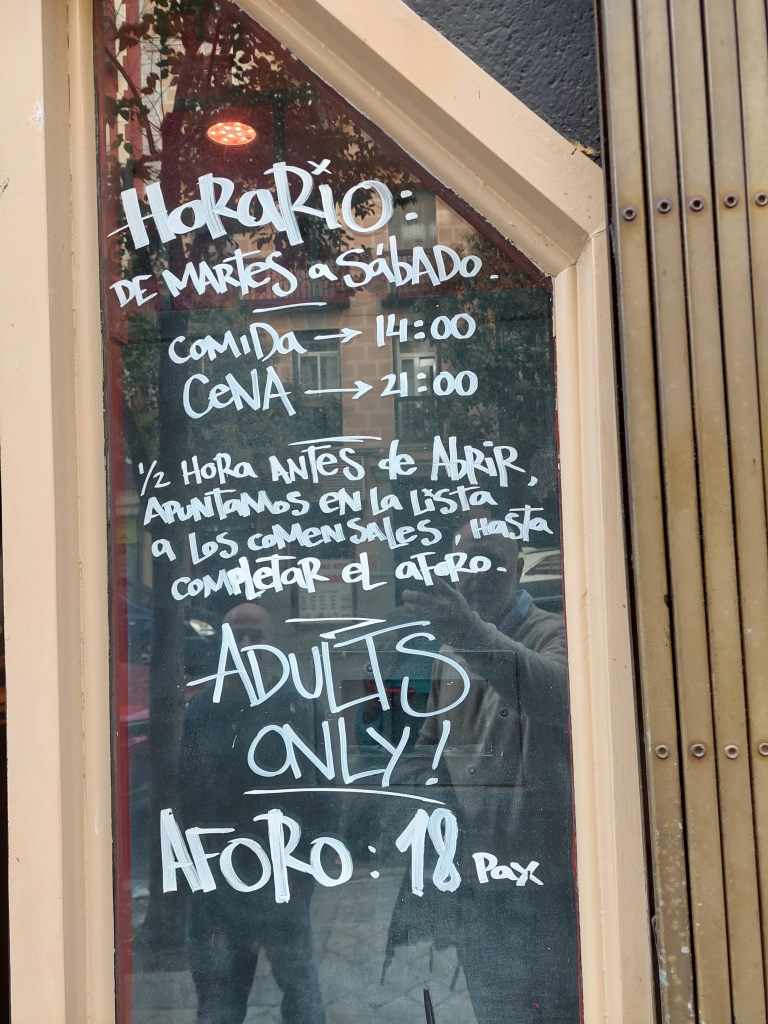 HORARIO:
DE MARTES a SÁbADO.
COMIDa → 14:00
CENA → 21:00
1/2 HORa ANTES de AbRIR,
APUNTAMOS EN La LISTA
a LOS COMENSALES, HASTA
COMPLETAR EL aFORO.
ADULTS
ONLY!
AFORO: 18 Pax